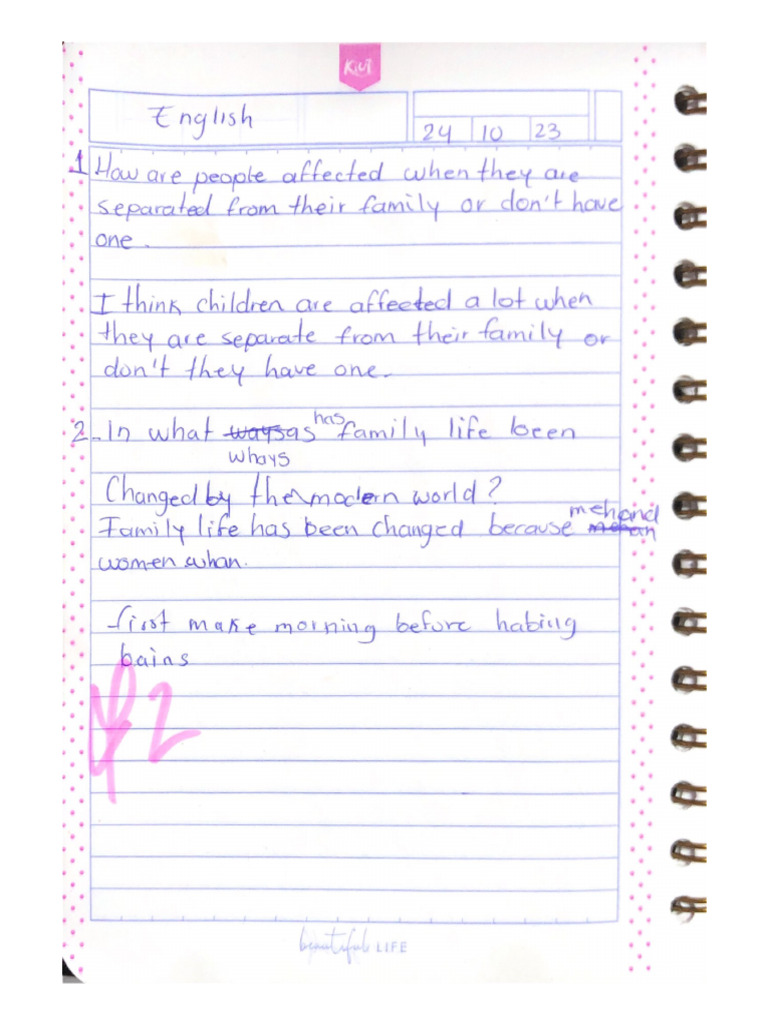 KiUi
English
24 10 23
1 How are people affected when they are
separated from their family or don't have
one.
I think children are affected a lot when
they are separate from their family or
don't they have one.
2-In what ways as has family life been
whays
Changed by the modern world?
Family life has been changed because meh and
women whan.
first make morning before habing
bains
2
beautiful LIFE